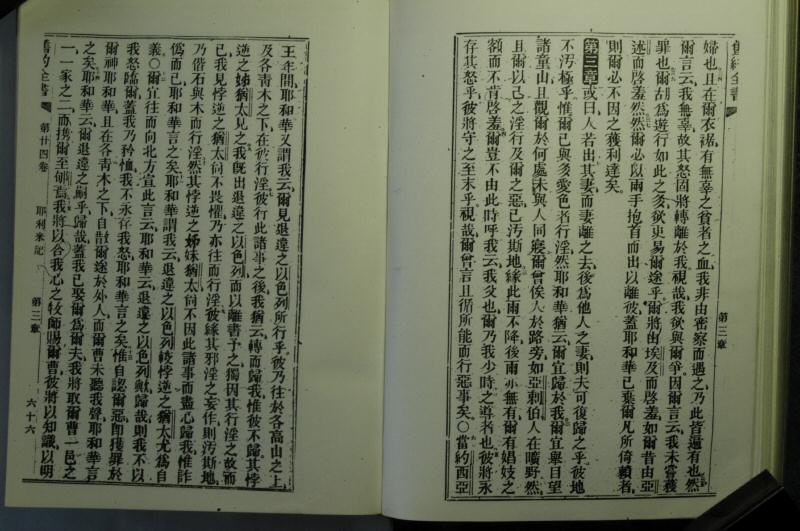 舊約全書
第三章
婦也且在爾衣裾有無辜之貧者之血我非由密察而遇之乃此皆遍有也然
爾言云我無辜故其怒固將轉離於我視哉我欲與爾爭因爾言云我未嘗獲
罪也爾胡為遊行如此之多欲更易爾途乎爾將由埃及而啓羞如爾昔由亞
述而啓羞然然爾必以兩手抱首而出以離彼蓋耶和華已棄爾凡所倚賴者
則爾必不因之獲利達矣
第三章或曰人若出其妻而妻離之去後為他人之妻則夫可復歸之乎彼地
不污極乎惟爾已與多愛色者行淫然耶和華猶云爾宜歸於我爾宜舉目望
諸童山且觀爾於何處未與人同寢爾曾俟人於路旁如亞剌伯人在曠野然
且爾以己之淫行及爾之惡已污斯地緣此雨不降後雨亦無有爾有娼妓之
額而不肯啓羞爾豈不由此時呼我云我父也爾乃我少時之導者也彼將永
存其怒乎彼將守之至末乎視哉爾曾言且循所能而行惡事矣○當約西亞
王年間耶和華又謂我云爾見退違之以色列所行乎彼乃往於各高山之上
及各青木之下在彼行淫彼行此諸事之後我猶云轉而歸我惟彼不歸其悖
逆之姊猶太見之我既出退違之以色列而以離書予之獨因其行淫之故而
已我見悖逆之猶太尙不畏懼乃亦往而行淫彼緣其邪淫之妄作則汚斯地
乃偕石與木而行淫然其悖逆之姊妹猶太尙不因此諸事而盡心歸我惟詐
偽而已耶和華言之矣耶和華謂我云退違之以色列較悖逆之猶太尤為自
義○爾宜往而向北方宣此言云耶和華云退違之以色列歟歸哉則我不以
我怒臨爾蓋我乃矜恤我不永存我怒耶和華言之矣惟自認爾惡即獲罪於
爾神耶和華且在各青木之下自散爾途於外人而爾曹未聽我聲耶和華言
之矣耶和華云爾退違之嗣乎歸哉蓋我已娶爾爲爾夫我將取爾曹一邑之
一一家之二而携爾至郇焉我將以合我心之牧師賜爾曹彼將以知識以明
舊約全書
第廿四卷
耶利米記
第三章
六十六